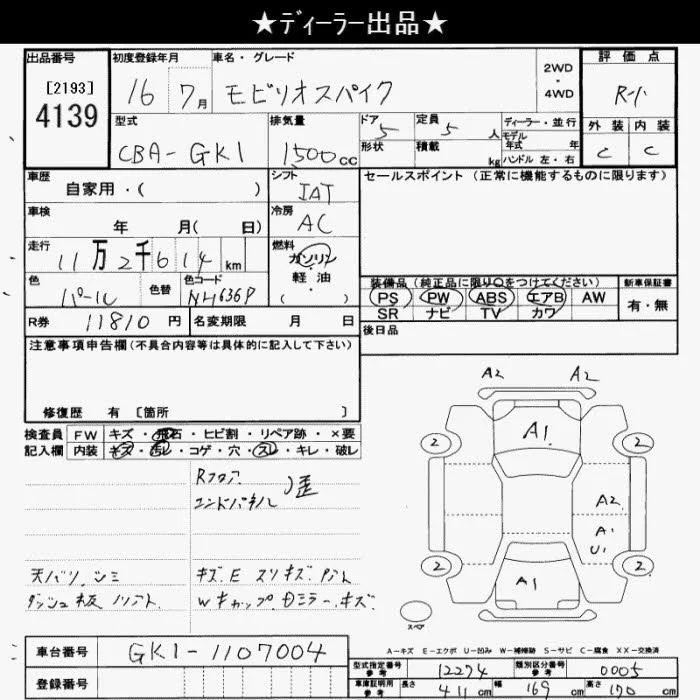 ★ディーラー出品★
出品番号 初度登録年月 車名・グレード 2WD・4WD 評価点
[2193] 4139
16 7月 モビリオスパイク R-1
型式 排気量 ドア 定員 ディーラー・並行 外装 内装
CBA-GK1 1500cc 5 5人 モデル年式 年 C C
形状 積載 kg ハンドル 左・右
車歴 シフト セールスポイント (正常に機能するものに限ります)
自家用・( ) IAT
車検 冷房
年 月( 日) AC
走行 燃料
11万2千614km ガソリン・軽油・( )
色 色替 色コード
パール NH636P
装備品 (純正品に限り○をつけてください) 新車保証書
PS PW ABS エアB AW 有・無
SR ナビ TV カワ
R券 11810円 名変期限 月 日 後日品
注意事項申告欄(不具合内容等は具体的に記入して下さい)
修復歴 有 [箇所 ]
検査員記入欄 FW キズ・飛石・ヒビ割・リペア跡・×要
内装 キズ・汚レ・コゲ・穴・スレ・キレ・破レ
Rフロア
エンドパネル
歪
天バリ シミ キズ.E スリキズ.
ダッシュ板 Wキャップ.ミラー.キズ.
A2 A2
A1
2 2
A2
A1
U1
2 2
A1
スペア
A-キズ E-エクボ U-凹み W-補修跡 S-サビ C-腐食 XX-交換済
車台番号 GK1-1107004
登録番号
型式指定番号 参考 12274 類別区分番号 参考 0005
車庫証明用 参考 長さ 411cm 幅 169cm 高さ 170cm